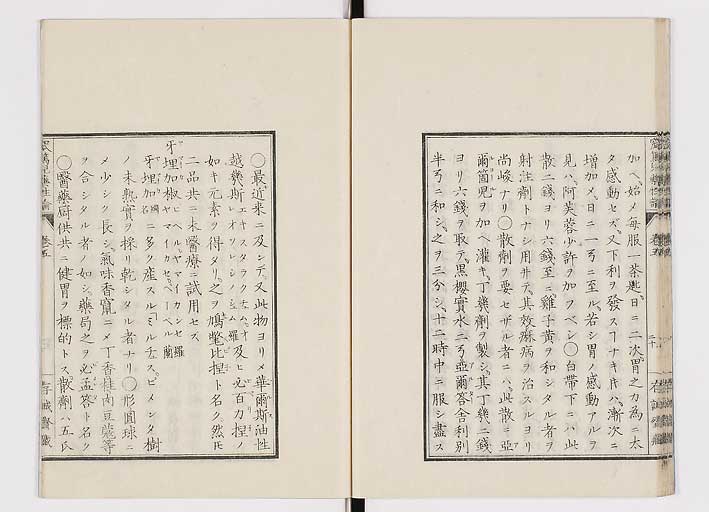 加ヘ、始メ每服一茶匙、日ニ二次、胃之力為ニ太
タ感動セズ、又下利ヲ發スヿナキ片ハ、漸次ニ
増加メ、日ニ一ヲニ至ル、若シ胃ノ感動アルヲ
見ハ、阿芙蓉少許ヲ加フベシ○白帶下ニハ此
散二錢ヨリ六錢至ニ雞子黃ヲ和シタル者ヲ
射注劑トナシ用井テ、其效療病ヲ治スルヨリ
尚峻ナリ○散劑ヲ要セザル者ニハ、此散ニ亞
爾箇兒ヲ加ヘ灌キ、丁幾劑ヲ製シ、其丁幾二錢
ヨリ六錢ヲ取テ、黑櫻實水二ヲ亞爾答舎利別
半ヲニ和シ、之ヲ三分シ、十二時中ニ服シ盡ス
○最近來ニ及ンデ、又此物ヨリメ華爾斯油性
越幾斯 及ヒ必百力捏ノ
如キ元素ヲ得タリ、之ヲ鳩鼈比捏ト名ク、然氏
二品共ニ未醫療ニ試用セズ
牙埋加椒
牙埋加 ニ多ク産スル「ミルチス、ピメンタ樹
ノ未熟實ヲ採リ乾シタル者ナリ○形圓球ニ
メ少シク長シ、氣味香竄ニメ丁香桂肉豆蔲等
ヲ合シタル者ノ如シ、藥局之ヲ必孟答ト名ク
○醫藥厨供共ニ健胃ヲ標的トス、散劑ハ五氏
卷五